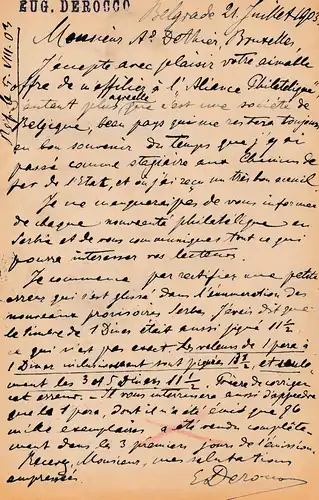 EUG. DEROCCO
Belgrade 21 Juillet 1903
Monsieur Ad. Dothier, Bruxelles,
J'accepte avec plaisir votre aimable
offre de m'affilier à l'"Aliance Philatélique"
d'autant plus, que c'est une société de
Belgique, beau pays qui me restera toujours
en bon souvenir du temps que j'y ai
passé comme stagiaire aux Chemins de
fer de l'Etat, et où j'ai reçu un très bon accueil.
Je ne manquerai pas de vous informer
de chaque nouveauté philatélique en
Serbie et de vous communiquer tout ce qui
pourra intéresser vos lecteurs.
Je commence par rectifier une petite
erreur qui s'est glissé dans l'énumération des
nouveaux provisoires Serbes. J'avais dit que
le timbre de 1 Dinar était aussi piqué 11½
ce qui n'est pas exact. Les valeurs de 1 para à
1 Dinar sont piquées et seule-
ment les 3 et 5 Dinars 11½. Prière de corriger
cet erreur. Il vous intéressera aussi d'apprendre
que la 1 para, dont il n'a été émis que 96
mille exemplaires a été vendu complète-
ment dans les 3 premiers jours de l'émission.
Recevez, Monsieur, mes salutations
empressées.
E. Derocco